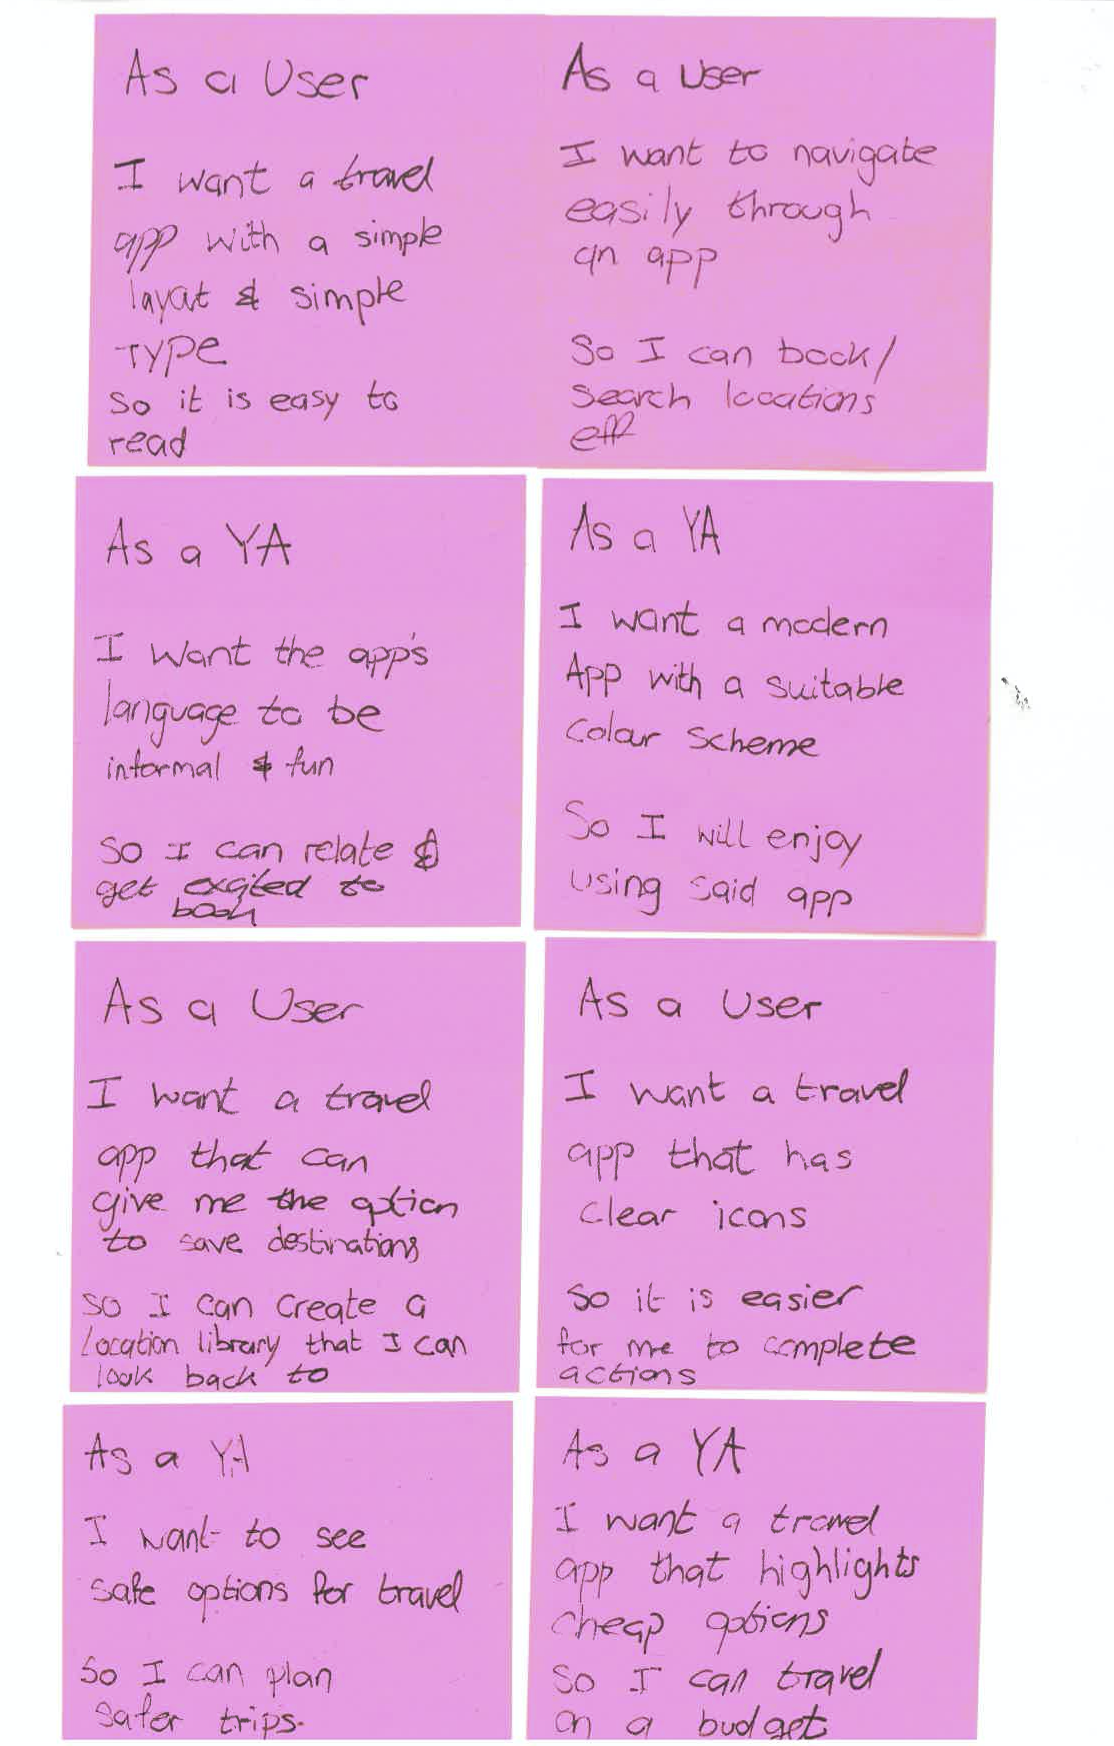 As a User
I want a travel
app with a simple
layout & simple
TYPE
So it is easy to
read
As a User
I want to navigate
easily through
an app
So I can book/
Search locations
eff
As a YA
I want the app's
language to be
informal & fun
So I can relate &
get excited to
book
As a YA
I want a modern
App with a suitable
Colour Scheme
So I will enjoy
using said app
As a User
I want a travel
app that can
give me the option
to save destinations
So I can create a
location library that I can
look back to
As a User
I want a travel
app that has
clear icons
So it is easier
for me to complete
actions
As a YA
I want to see
safe options for travel
So I can plan
safer trips.
As a YA
I want a travel
app that highlights
cheap options
So I can travel
on a budget